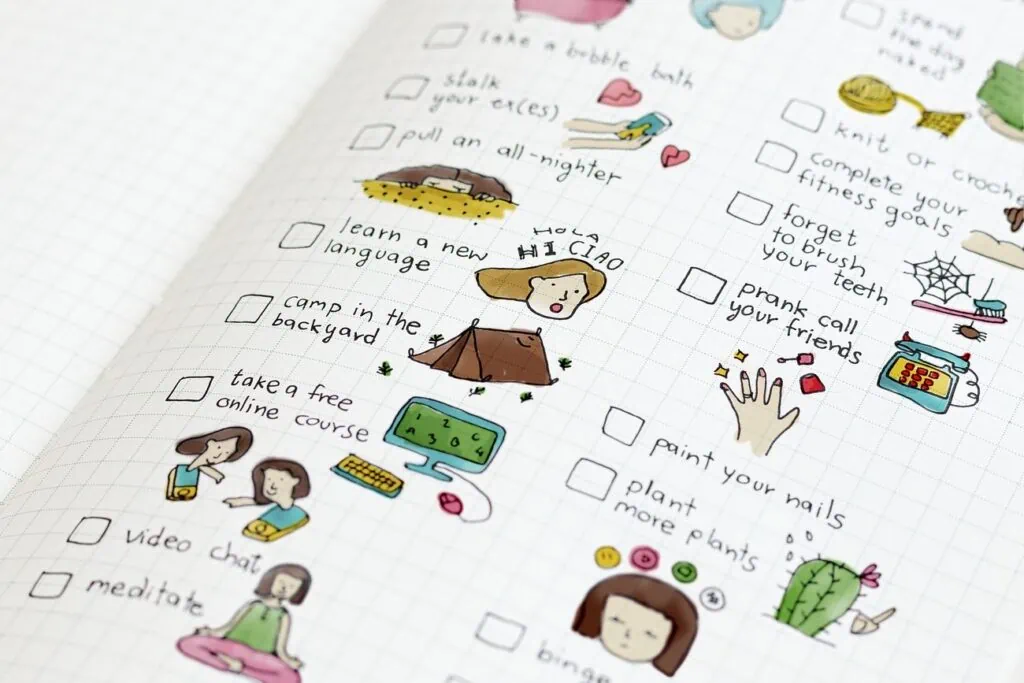 take a bubble bath
stalk
your ex(es)
pull an all-nighter
learn a new
language
HOLA
HI CIAO
camp in the
backyard
take a free
online course
1 2 C
A 3 B 4
video chat
meditate
spend
the day
naked
knit or crochet
complete your
fitness goals
forget
to brush
your teeth
prank call
your friends
paint your nails
plant
more plants
binge